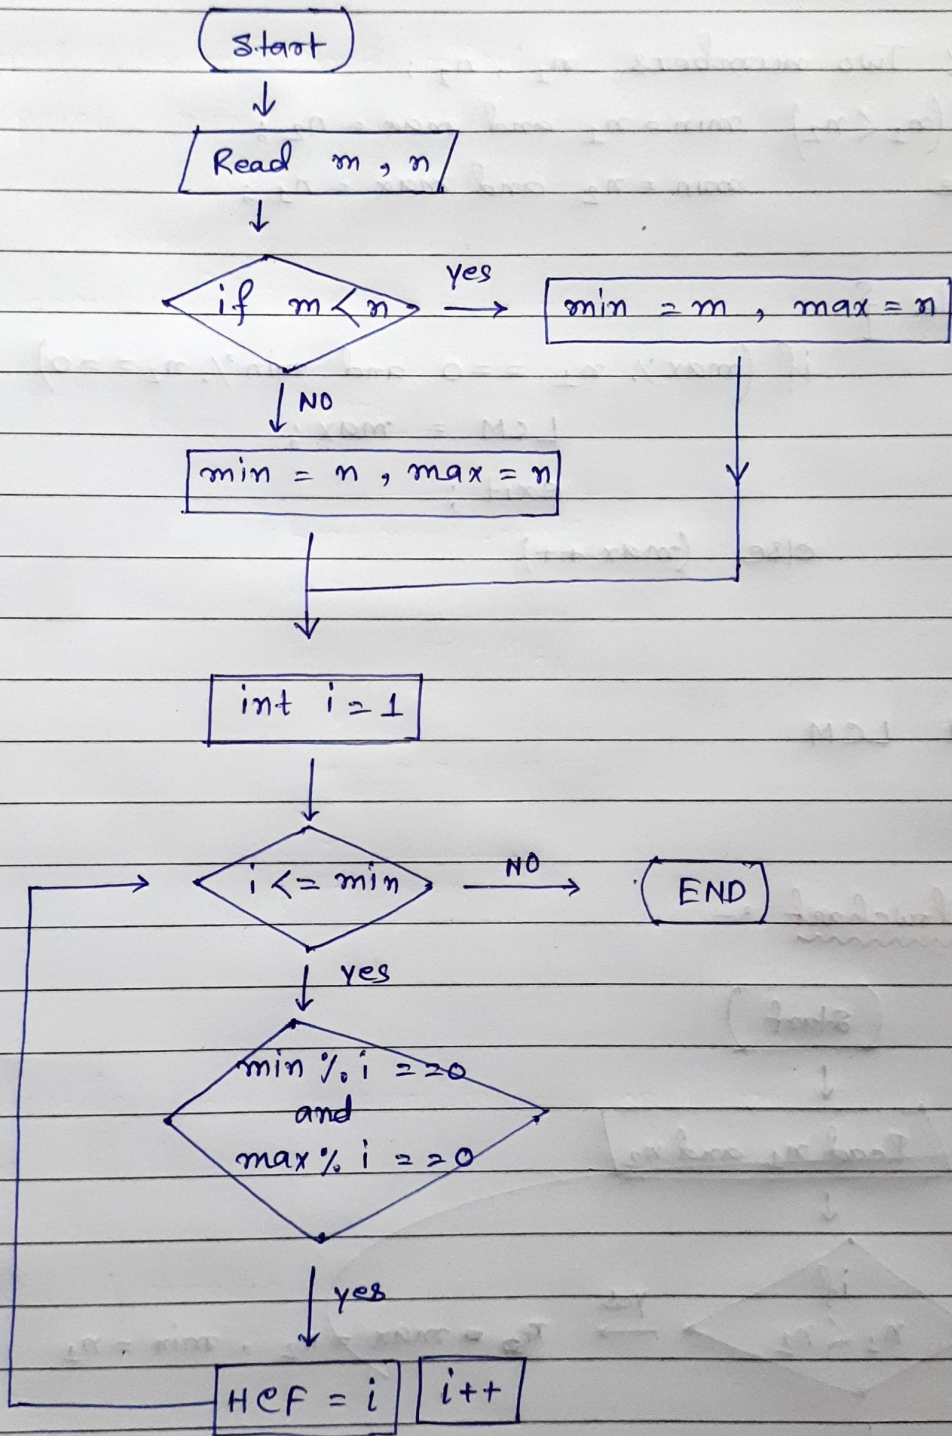 Start
Read m, n
if m < n
yes
min = m, max = n
NO
min = n, max = n
int i = 1
i <= min
NO
END
yes
min % i == 0
and
max % i == 0
yes
HCF = i
i++